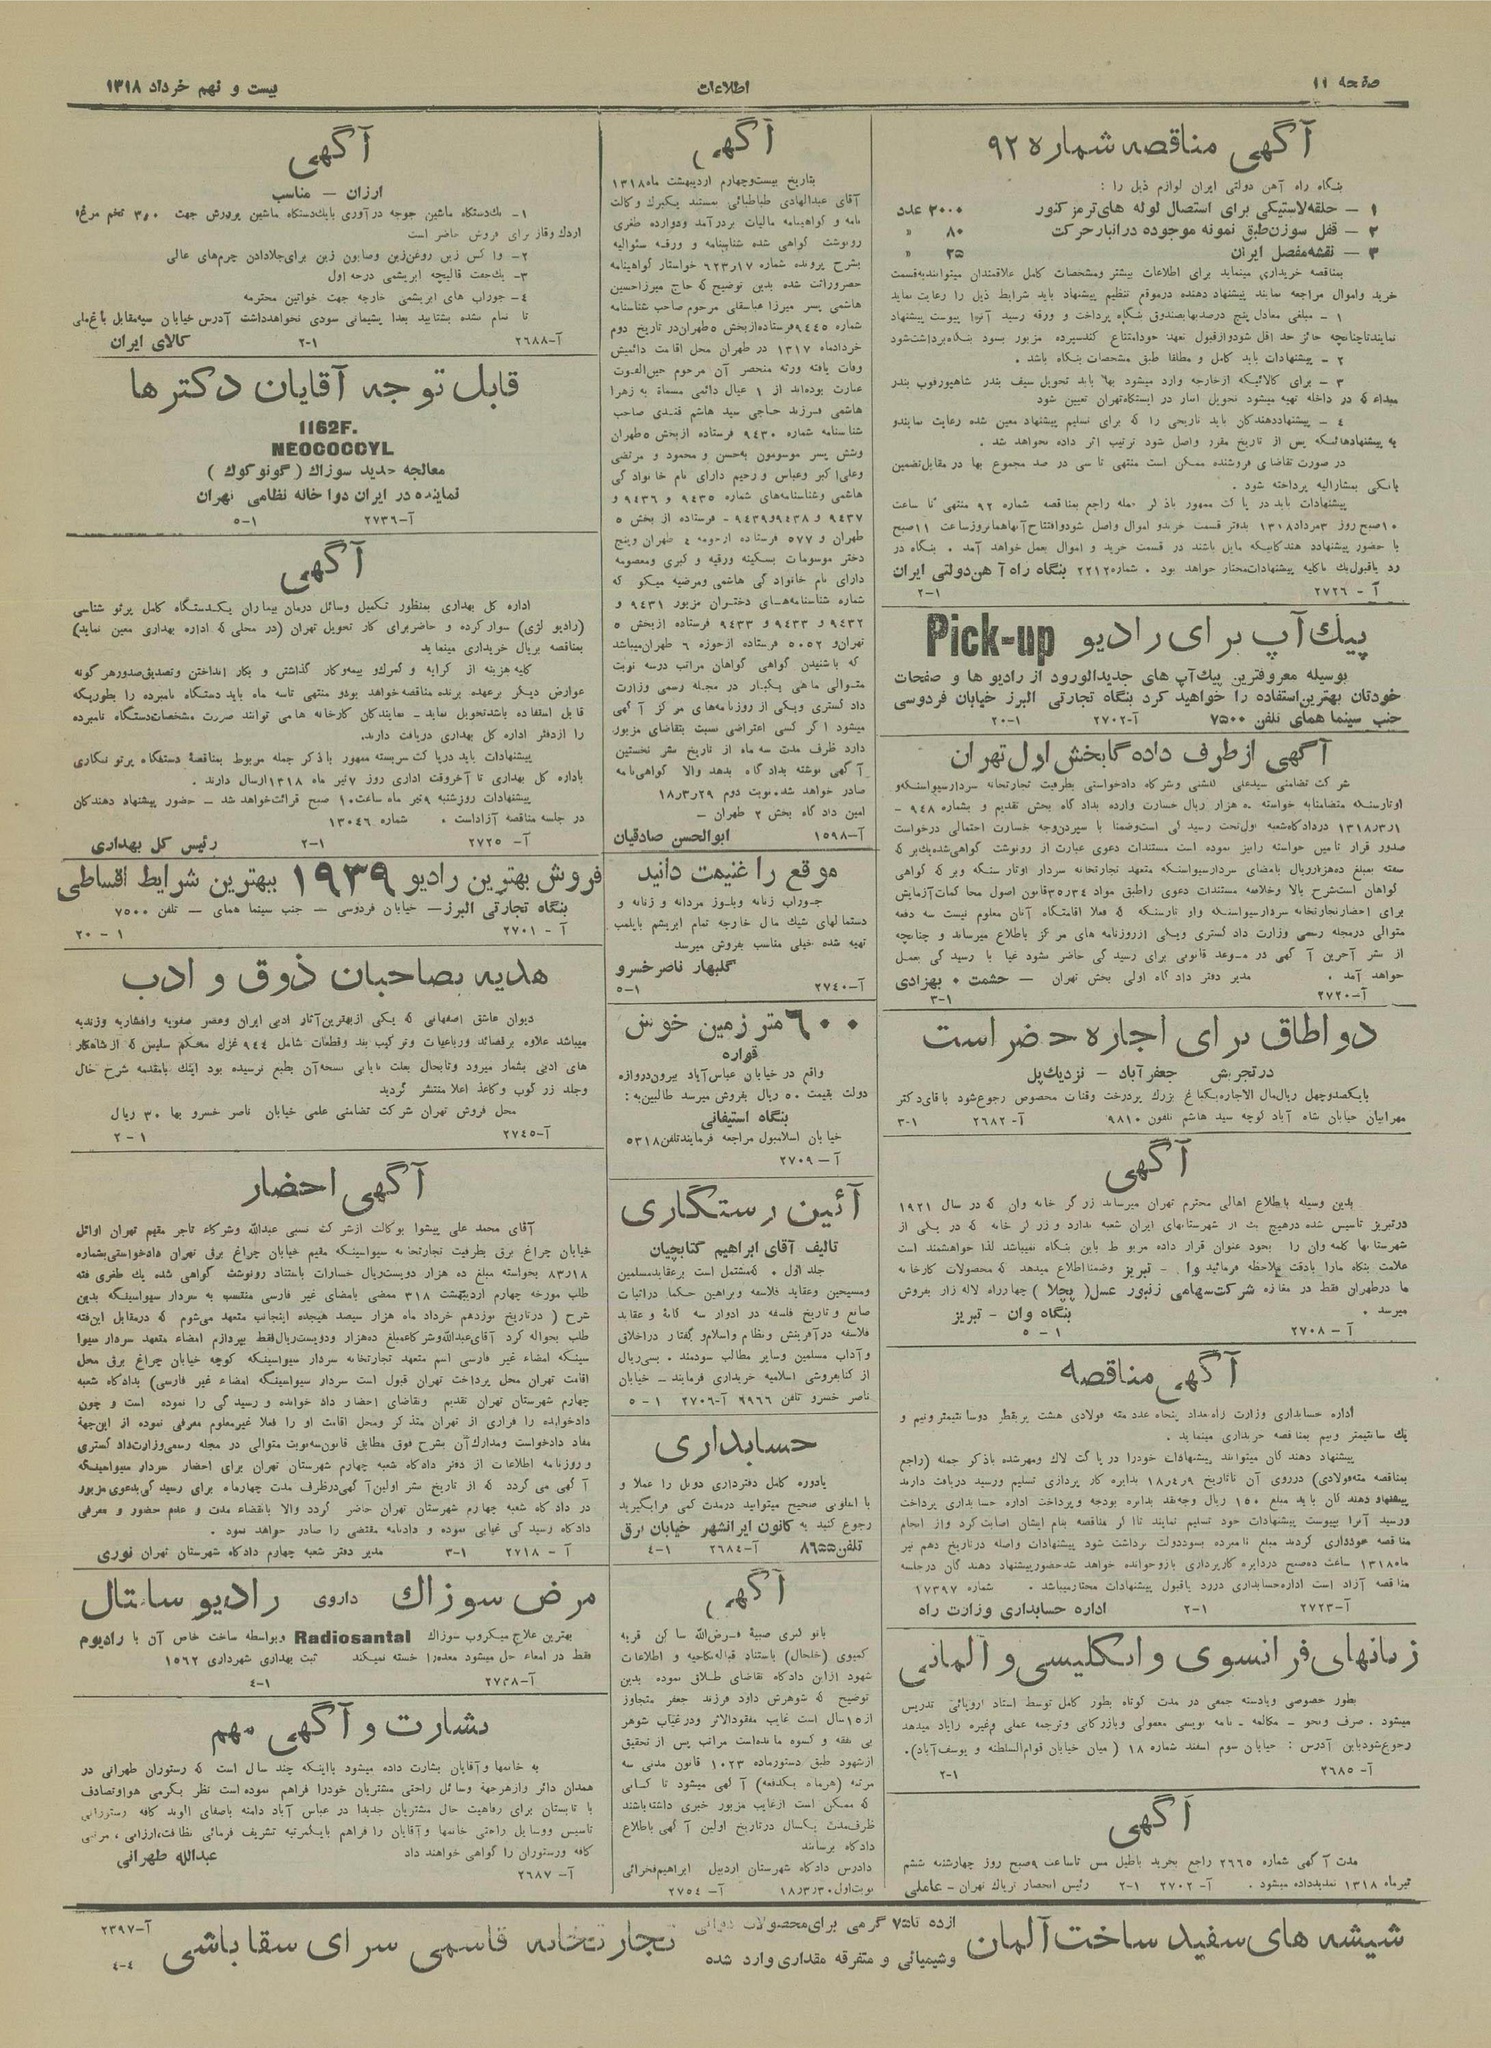 صفحه ۱۱
اطلاعات
بیست و نهم خرداد ۱۳۱۸
آگهی مناقصه شماره ۹۲
بنگاه راه آهن دولتی ایران لوازم ذیل را :
۱ — حلقه لاستیکی برای استصال لوله های ترمز کنور ۲۰۰۰ عدد
۲ — قفل سوزن طبق نمونه موجوده در انبار حرکت ۸۰ »
۳ — نقشه مفصل ایران ۲۵ »
بمناقصه خریداری مینماید برای اطلاعات بیشتر ومشخصات کامل علاقمندان میتوانند به قسمت
خرید واموال مراجعه نمایند پیشنهاد دهنده درموقع تنظیم پیشنهاد باید شرایط ذیل را رعایت نماید
۱ — مبلغی معادل پنج درصد بها بصندوق بنگاه پرداخت و ورقه رسید آنرا پیوست پیشنهاد
نمایند تا چنانچه حائز حد اقل شود و از قبول تعهد خود امتناع کند سپرده مزبور بسود بنگاه برداشت شود
۲ — پیشنهادات باید کامل و مطلقا طبق مشخصات بنگاه باشد .
۳ — برای کالائیکه از خارجه وارد میشود بها باید تحویل سیف بندر شاهپور فوب بندر
مبداء که در داخله تهیه میشود تحویل انبار در ایستگاه تهران تعیین شود
۴ — پیشنهاد دهندگان باید تاریخی را که برای تسلیم پیشنهاد معین شده رعایت نمایند و
به پیشنهادهائیکه پس از تاریخ مقرر واصل شود ترتیب اثر داده نخواهد شد .
در صورت تقاضای فروشنده ممکن است منتهی تا سی در صد مجموع بها در مقابل تضمین
بانکی بمشارالیه پرداخته شود .
پیشنهادات باید در پاکت ممهور با ذکر جمله راجع بمناقصه شماره ۹۲ منتهی تا ساعت
۱۰ صبح روز ۳ مرداد ۱۳۱۸ بدفتر قسمت خرید و اموال واصل شود و افتتاح آنها همانروز ساعت ۱۱ صبح
با حضور پیشنهاد دهندگانیکه مایل باشند در قسمت خرید و اموال بعمل خواهد آمد . بنگاه در
رد یا قبول یک یا کلیه پیشنهادات مختار خواهد بود . شماره ۲۲۱۲ بنگاه راه آهن دولتی ایران
آ — ۲۷۲۶ ۲-۱
پیک آپ برای رادیو Pick-up
بوسیله معروفترین پیک آپ های جدیدالورود از رادیو ها و صفحات
خودتان بهترین استفاده را خواهید کرد بنگاه تجارتی البرز خیابان فردوسی
جنب سینما همای تلفن ۷۵۰۰ آ-۲۷۰۲ ۲۰-۱
آگهی از طرف دادگاه بخش اول تهران
شرکت تضامنی سیدعلی وشرکاء دادخواستی بطرفیت تجارتخانه سردار سیواسنگه و
اوتارسنگه متضامنا به خواسته ده هزار ریال خسارت وارده بداد گاه بخش تقدیم و بشماره ۹۴۸ -
۱۳۱۸٫۳٫۱ در دادگاه شعبه اول تحت رسید گی است وضمنا با سپردن وجه خسارت احتمالی درخواست
صدور قرار تامین خواسته را نیز نموده است مستندات دعوی عبارت از رونوشت گواهی شده یک برگ
سفته بمبلغ ده هزار ریال بامضای سردار سیواسنگه متعهد تجارتخانه سردار اوتار سنگه وبرگه گواهی
گواهان است شرح بالا وخلاصه مستندات دعوی را طبق مواد ۳۴ و ۳۵ قانون اصول محاکمات آزمایش
برای احضار تجارتخانه سردار سیواسنگه واوتارسنگه که فعلا اقامتگاه آنان معلوم نیست سه دفعه
متوالی درمجله رسمی وزارت داد گستری و یکی از روزنامه های مرکز باطلاع میرساند و چنانچه
از نشر آخرین آگهی در موعد قانونی برای رسید گی حاضر نشود غیابا رسید گی بعمل
خواهد آمد . مدیر دفتر داد گاه اولی بخش تهران — حشمت . بهزادی
آ—۲۷۲۰ ۳-۱
دو اطاق برای اجاره حضر است
در تجریش جعفر آباد — نزدیک پل
بایکصد و چهل ریال مال الاجاره یکباغ بزرگ پر درخت وقنات مخصوص رجوع شود با قای دکتر
مهرابیان خیابان شاه آباد کوچه سید هاشم تلفون ۹۸۱۰ آ- ۲۶۸۲ ۳-۱
آگهی
بدین وسیله باطلاع اهالی محترم تهران میرساند زرگر خانه وان که در سال ۱۹۲۱
در تبریز تاسیس شده در هیچ یک از شهرستانهای ایران شعبه ندارد و زرگر خانه که در یکی از
شهرستانها کلمه وان را بخود عنوان قرار داده مربوط باین بنگاه نمیباشد لذا خواهشمند است
علامت بنگاه مارا بادقت ملاحظه فرمائید وان - تبریز وضمنا اطلاع میدهد که محصولات کارخانه
ما در طهران فقط در مغازه شرکت سهامی زنبور عسل (پچلا) چهارراه لاله زار بفروش
میرسد . بنگاه وان - تبریز
آ — ۲۷۰۸ ۱ — ۵
آگهی مناقصه
اداره حسابداری وزارت راه تعداد پنجاه عدد مته فولادی هشت پر بقطر دو سانتیمتر ونیم و
یک سانتیمتر ونیم بمناقصه خریداری مینماید .
پیشنهاد دهند گان میتوانند پیشنهادات خود را در پاکت لاک ومهر شده باذکر جمله (راجع
بمناقصه مته فولادی) در روی آن تا تاریخ ۱۸٫۴٫۹ بدایره کار پردازی تسلیم ورسید دریافت دارند
پیشنهاد دهند گان باید مبلغ ۱۵۰ ریال وجه نقد بدایره بودجه وپرداخت اداره حسابداری پرداخت
ورسید آنرا بپیوست پیشنهادات خود تسلیم نمایند تا اگر مناقصه بنام ایشان اصابت کرد و از انجام
مناقصه خودداری کردند مبلغ نامبرده بسود دولت برداشت شود پیشنهادات واصله در تاریخ دهم تیر
ماه ۱۳۱۸ ساعت ده صبح در دایره کار پردازی باز و خوانده خواهد شد حضور پیشنهاد دهند گان در جلسه
مناقصه آزاد است اداره حسابداری در رد یا قبول پیشنهادات مختار میباشد . شماره ۱۷۳۹۷
آ-۲۷۲۳ ۲-۱ اداره حسابداری وزارت راه
زبانهای فرانسوی و انگلیسی و آلمانی
بطور خصوصی و یا دسته جمعی در مدت کوتاه بطور کامل توسط استاد اروپائی تدریس
میشود . صرف ونحو — مکالمه — نامه نویسی معمولی وبازرگانی وترجمه عملی وغیره را یاد میدهد
رجوع شود باین آدرس : خیابان سوم اسفند شماره ۱۸ ( میان خیابان قوام السلطنه و یوسف آباد).
آ- ۲۶۸۵ ۲-۱
آگهی
مدت آگهی شماره ۲۶۶۵ راجع بخرید باطیل مس تا ساعت ۹ صبح روز چهارشنبه ششم
تیرماه ۱۳۱۸ تمدید داده میشود . آ- ۲۷۰۲ ۲-۱ رئیس انحصار تریاک تهران - عاملی
آگهی
بتاریخ بیست وچهارم اردیبهشت ماه ۱۳۱۸
آقای عبدالهادی طباطبائی بمستند یکبرگ وکالت
نامه و گواهینامه مالیات بر درآمد ودوازده طغری
رونوشت گواهی شده شناسنامه و ورقه سئوالیه
بشرح پرونده شماره ۶۲۳٫۱۷ خواستار گواهینامه
حصر وراثت شده بدین توضیح که حاج میرزا حسین
هاشمی پسر میرزا عباسقلی مرحوم صاحب شناسنامه
شماره ۹۴۴۵ فرستاده از بخش ۵ طهران در تاریخ دوم
خرداد ماه ۱۳۱۷ در طهران محل اقامت دائمیش
وفات یافته ورثه منحصر آن مرحوم حین الفوت
عبارت بوده اند از ۱ عیال دائمی مسماة به زهرا
هاشمی فرزند حاجی سید هاشم قندی صاحب
شناسنامه شماره ۹۴۳۰ فرستاده از بخش ۵ طهران
وشش پسر موسومون به حسن و محمود و مرتضی
وعلی اکبر وعباس و رحیم دارای نام خانواد گی
هاشمی وشناسنامه های شماره ۹۴۳۵ و ۹۴۳۶ و
۹۴۳۷ و ۹۴۳۸ و ۹۴۳۹ - فرستاده از بخش ۵
طهران و ۵۷۷ فرستاده از حومه ۴ طهران وپنج
دختر موسومات بسکینه ورقیه و کبری ومعصومه
دارای نام خانواد گی هاشمی ومرضیه میکو که
شماره شناسنامه هـای دختران مزبور ۹۴۳۱ و
۹۴۳۲ و ۹۴۳۳ و ۹۴۳۳ فرستاده از بخش ۵
تهران و ۵۰۵۲ فرستاده از حوزه ۶ طهران میباشد
که با شنیدن گواهی گواهان مراتب در سه نوبت
متوالی ماهی یکبار در مجله رسمی وزارت
داد گستری ویکی از روزنامه های مرکز آگهی
میشود اگر کسی اعتراضی نسبت بتقاضای مزبور
دارد ظرف مدت سه ماه از تاریخ نشر نخستین
آگهی نوشته بداد گاه بدهد والا گواهی نامه
صادر خواهد شد . نوبت دوم ۱۸٫۳٫۲۹
امین داد گاه بخش ۲ طهران —
آ-۱۵۹۸ ابوالحسن صادقیان
موقع را غنیمت دانید
جـوراب زنانه وبلوز مردانه و زنانه و
دستمالهای شیک مال خارجه تمام ابریشم
تهیه شده خیلی مناسب بفروش میرسد
گلبهار ناصر خسرو
آ-۲۷۴۰ ۵-۱
۶۰۰ متر زمین خوش
قواره
واقع در خیابان عباس آباد بیرون دروازه
دولت بقیمت ۵۰ ریال بفروش میرسد طالبین به :
بنگاه استیفانی
خیابان اسلامبول مراجعه فرمایند تلفن ۵۳۱۸
آ — ۲۷۰۹
آئین رستگاری
تالیف آقای ابراهیم کتابچیان
جلد اول . که مشتمل است بر عقاید مسلمین
ومسیحین وعقاید فلاسفه وبراهین حکما در اثبات
صانع و تاریخ فلسفه در ادوار سه گانه و عقاید
فلاسفه در آفرینش ونظام واسلام وگفتار در اخلاق
وآداب مسلمین وسایر مطالب سودمند . بسی ریال
از کتابفروشی اسلامیه خریداری فرمایند — خیابان
ناصر خسرو تلفن ۹۹۶۶ آ-۲۷۰۶ ۱- ۵
حسابداری
یادوره کامل دفترداری دوبل را عملا و
با اسلوبی صحیح میتوانید در مدت کمی فرا بگیرید
رجوع کنید به کانون ایرانشهر خیابان برق
تلفن ۸۶۵۵ آ-۲۶۸۴ ۴-۱
آگهی
بانو کبری صبیۀ فـرض الله ساکن قریه
کمیوی (خلخال) باستناد قباله نکاحیه و اطلاعات
شهود از این دادگاه تقاضای طلاق نموده بدین
توضیح که شوهرش داود فرزند جعفر متجاوز
از ۱۵ سال است غایب مفقودالاثر ودر غیاب شوهر
بی نفقه و کسوه مانده است مراتب پس از تحقیق
از شهود طبق دستور ماده ۱۰۲۳ قانون مدنی سه
مرتبه (هر ماه یکدفعه) آگهی میشود تا کسانی
که ممکن است از غایب مزبور خبری داشته باشند
ظرف مدت یکسال در تاریخ اولین آگهی باطلاع
دادگاه برسانند
دادرس دادگاه شهرستان اردبیل ابراهیم فخرائی
نوبت اول ۱۸٫۳٫۳۰ آ- ۲۷۵۴
آگهی
ارزان — مناسب
۱- یکدستگاه ماشین جوجه در آوری بایکدستگاه ماشین پرورش جهت ۳۰۰ تخم مرغ
اردک وقاز برای فروش حاضر است
۲- واکس زین روغن زین وصابون زین برای جلا دادن چرم های عالی
۳- یک جفت قالیچه ابریشمی درجه اول
۴- جوراب های ابریشمی خارجه جهت خواتین محترمه
تا تمام نشده بشتابید بعدا پشیمانی سودی نخواهد داشت آدرس خیابان سپه مقابل باغ ملی
آ-۲۶۸۸ ۲-۱ کالای ایران
قابل توجه آقایان دکترها
1162F.
NEOCOCCYL
معالجه جدید سوزاک ( گونوکوک )
نماینده در ایران دوا خانه نظامی تهران
آ-۲۷۳۶ ۵-۱
آگهی
اداره کل بهداری بمنظور تکمیل وسائل درمان بیماران یکدستگاه کامل پرتو شناسی
(رادیو لژی) سوار کرده و حاضر برای کار تحویل تهران (در محلی که اداره بهداری معین نماید)
بمناقصه بریال خریداری مینماید
کلیه هزینه از کرایه و گمرک و بیمه وکار گذاشتن و بکار انداختن و تصدیق صدور هر گونه
عوارض دیگر بر عهده برنده مناقصه خواهد بود و منتهی تا سه ماه باید دستگاه نامبرده را بطوریکه
قابل استفاده باشد تحویل نماید - نمایندگان کارخانه ها می توانند صورت مشخصات دستگاه نامبرده
را از دفتر اداره کل بهداری دریافت دارند.
پیشنهادات باید در پاکت سربسته ممهور باذکر جمله مربوط بمناقصۀ دستگاه پرتو نگاری
باداره کل بهداری تا آخر وقت اداری روز ۷ تیر ماه ۱۳۱۸ ارسال دارند .
پیشنهادات روز شنبه ۹ تیر ماه ساعت ۱۰ صبح قرائت خواهد شد — حضور پیشنهاد دهندگان
در جلسه مناقصه آزاد است . شماره ۱۳۰۴۶
آ- ۲۷۲۵ ۲-۱ رئیس کل بهداری
فروش بهترین رادیو ۱۹۳۹ ببهترین شرایط اقساطی
بنگاه تجارتی البرز — خیابان فردوسی — جنب سینما همای — تلفن ۷۵۰۰
آ — ۲۷۰۱ ۱ — ۲۰
هدیه بصاحبان ذوق و ادب
دیوان عاشق اصفهانی که یکی از بهترین آثار ادبی ایران وعصر صفویه وافشاریه وزندیه
میباشد علاوه بر قصائد ورباعیات وترکیب بند وقطعات شامل ۹۴۴ غزل محکم سلیس که از شاهکار
های ادبی بشمار میرود وتابحال بعلت نایابی نسخه آن بطبع نرسیده بود اینک بامقدمه شرح حال
وجلد زر کوب وکاغذ اعلا منتشر گردید
محل فروش تهران شرکت تضامنی علمی خیابان ناصر خسرو بها ۳۰ ریال
آ-۲۷۴۵ ۱ — ۲
آگهی احضار
آقای محمد علی پیشوا بوکالت از شرکت نسبی عبدالله وشرکاء تاجر مقیم تهران اوائل
خیابان چراغ برق بطرفیت تجارتخانه سیواسینگه مقیم خیابان چراغ برق تهران دادخواستی بشماره
۸۳٫۱۸ بخواسته مبلغ ده هزار دویست ریال خسارات باستناد رونوشت گواهی شده یک طغری فته
طلب مورخه چهارم اردیبهشت ۳۱۸ ممضی بامضای غیر فارسی منتسب به سردار سیواسینگه بدین
شرح ( در تاریخ نوزدهم خرداد ماه هزار سیصد هیجده اینجانب متعهد می شوم که در مقابل این فته
طلب بحواله کرد آقای عبدالله وشرکاء مبلغ ده هزار ودویست ریال فقط بپردازم امضاء متعهد سردار سیوا
سینگه امضاء غیر فارسی اسم متعهد تجارتخانه سردار سیواسینگه کوچه خیابان چراغ برق محل
اقامت تهران محل پرداخت تهران قبول است سردار سیواسینگه امضاء غیر فارسی) بدادگاه شعبه
چهارم شهرستان تهران تقدیم وتقاضای احضار داد خوانده و رسید گی را نموده است و چون
دادخوانده را فراری از تهران متذکر ومحل اقامت او را فعلا غیر معلوم معرفی نموده از این جهة
مفاد دادخواست ومدارک آن بشرح فوق مطابق قانون سه نوبت متوالی در مجله رسمی وزارت داد گستری
و روزنامه اطلاعات از دفتر دادگاه شعبه چهارم شهرستان تهران برای احضار سردار سیواسینگه
آگهی می گردد که از تاریخ نشر اولین آگهی در ظرف مدت چهار ماه برای رسید گی بدعوی مزبور
در داد گاه شعبه چهارم شهرستان تهران حاضر گردد والا بانقضاء مدت و عدم حضور و معرفی
دادگاه رسید گی غیابی نموده و دادنامه مقتضی را صادر خواهد نمود .
آ — ۲۷۱۸ ۳-۱ مدیر دفتر شعبه چهارم دادگاه شهرستان تهران نوری
مرض سوزاک داروی رادیو سانتال
بهترین علاج میکروب سوزاک Radiosantal وبواسطه ساخت خاص آن با رادیوم
فقط در امعاء حل میشود معده را خسته نمیکند ثبت بهداری شهرداری ۱۵۶۲
آ-۲۷۳۸ ۴-۱
بشارت و آگهی مهم
به خانمها وآقایان بشارت داده میشود بااینکه چند سال است که رستوران طهرانی در
همدان دائر و از هر جهة وسائل راحتی مشتریان خود را فراهم نموده است نظر بگرمی هوا وتصادف
با تابستان برای رفاهیت حال مشتریان جدیدا در عباس آباد دامنه باصفای الوند کافه رستورانی
تاسیس ووسایل راحتی خانمها وآقایان را فراهم بایکمرتبه تشریف فرمائی نظافت ، ارزانی ، مرغوبی
کافه ورستوران را گواهی خواهند داد
آ- ۲۶۸۷ عبدالله طهرانی
شیشه های سفید ساخت آلمان
از ده تا ۷۵ گرمی برای محصولات دوائی
وشیمیائی و متفرقه مقداری وارد شده
تجارتخانه قاسمی سرای سقا باشی
آ-۲۳۹۷
۴-۴